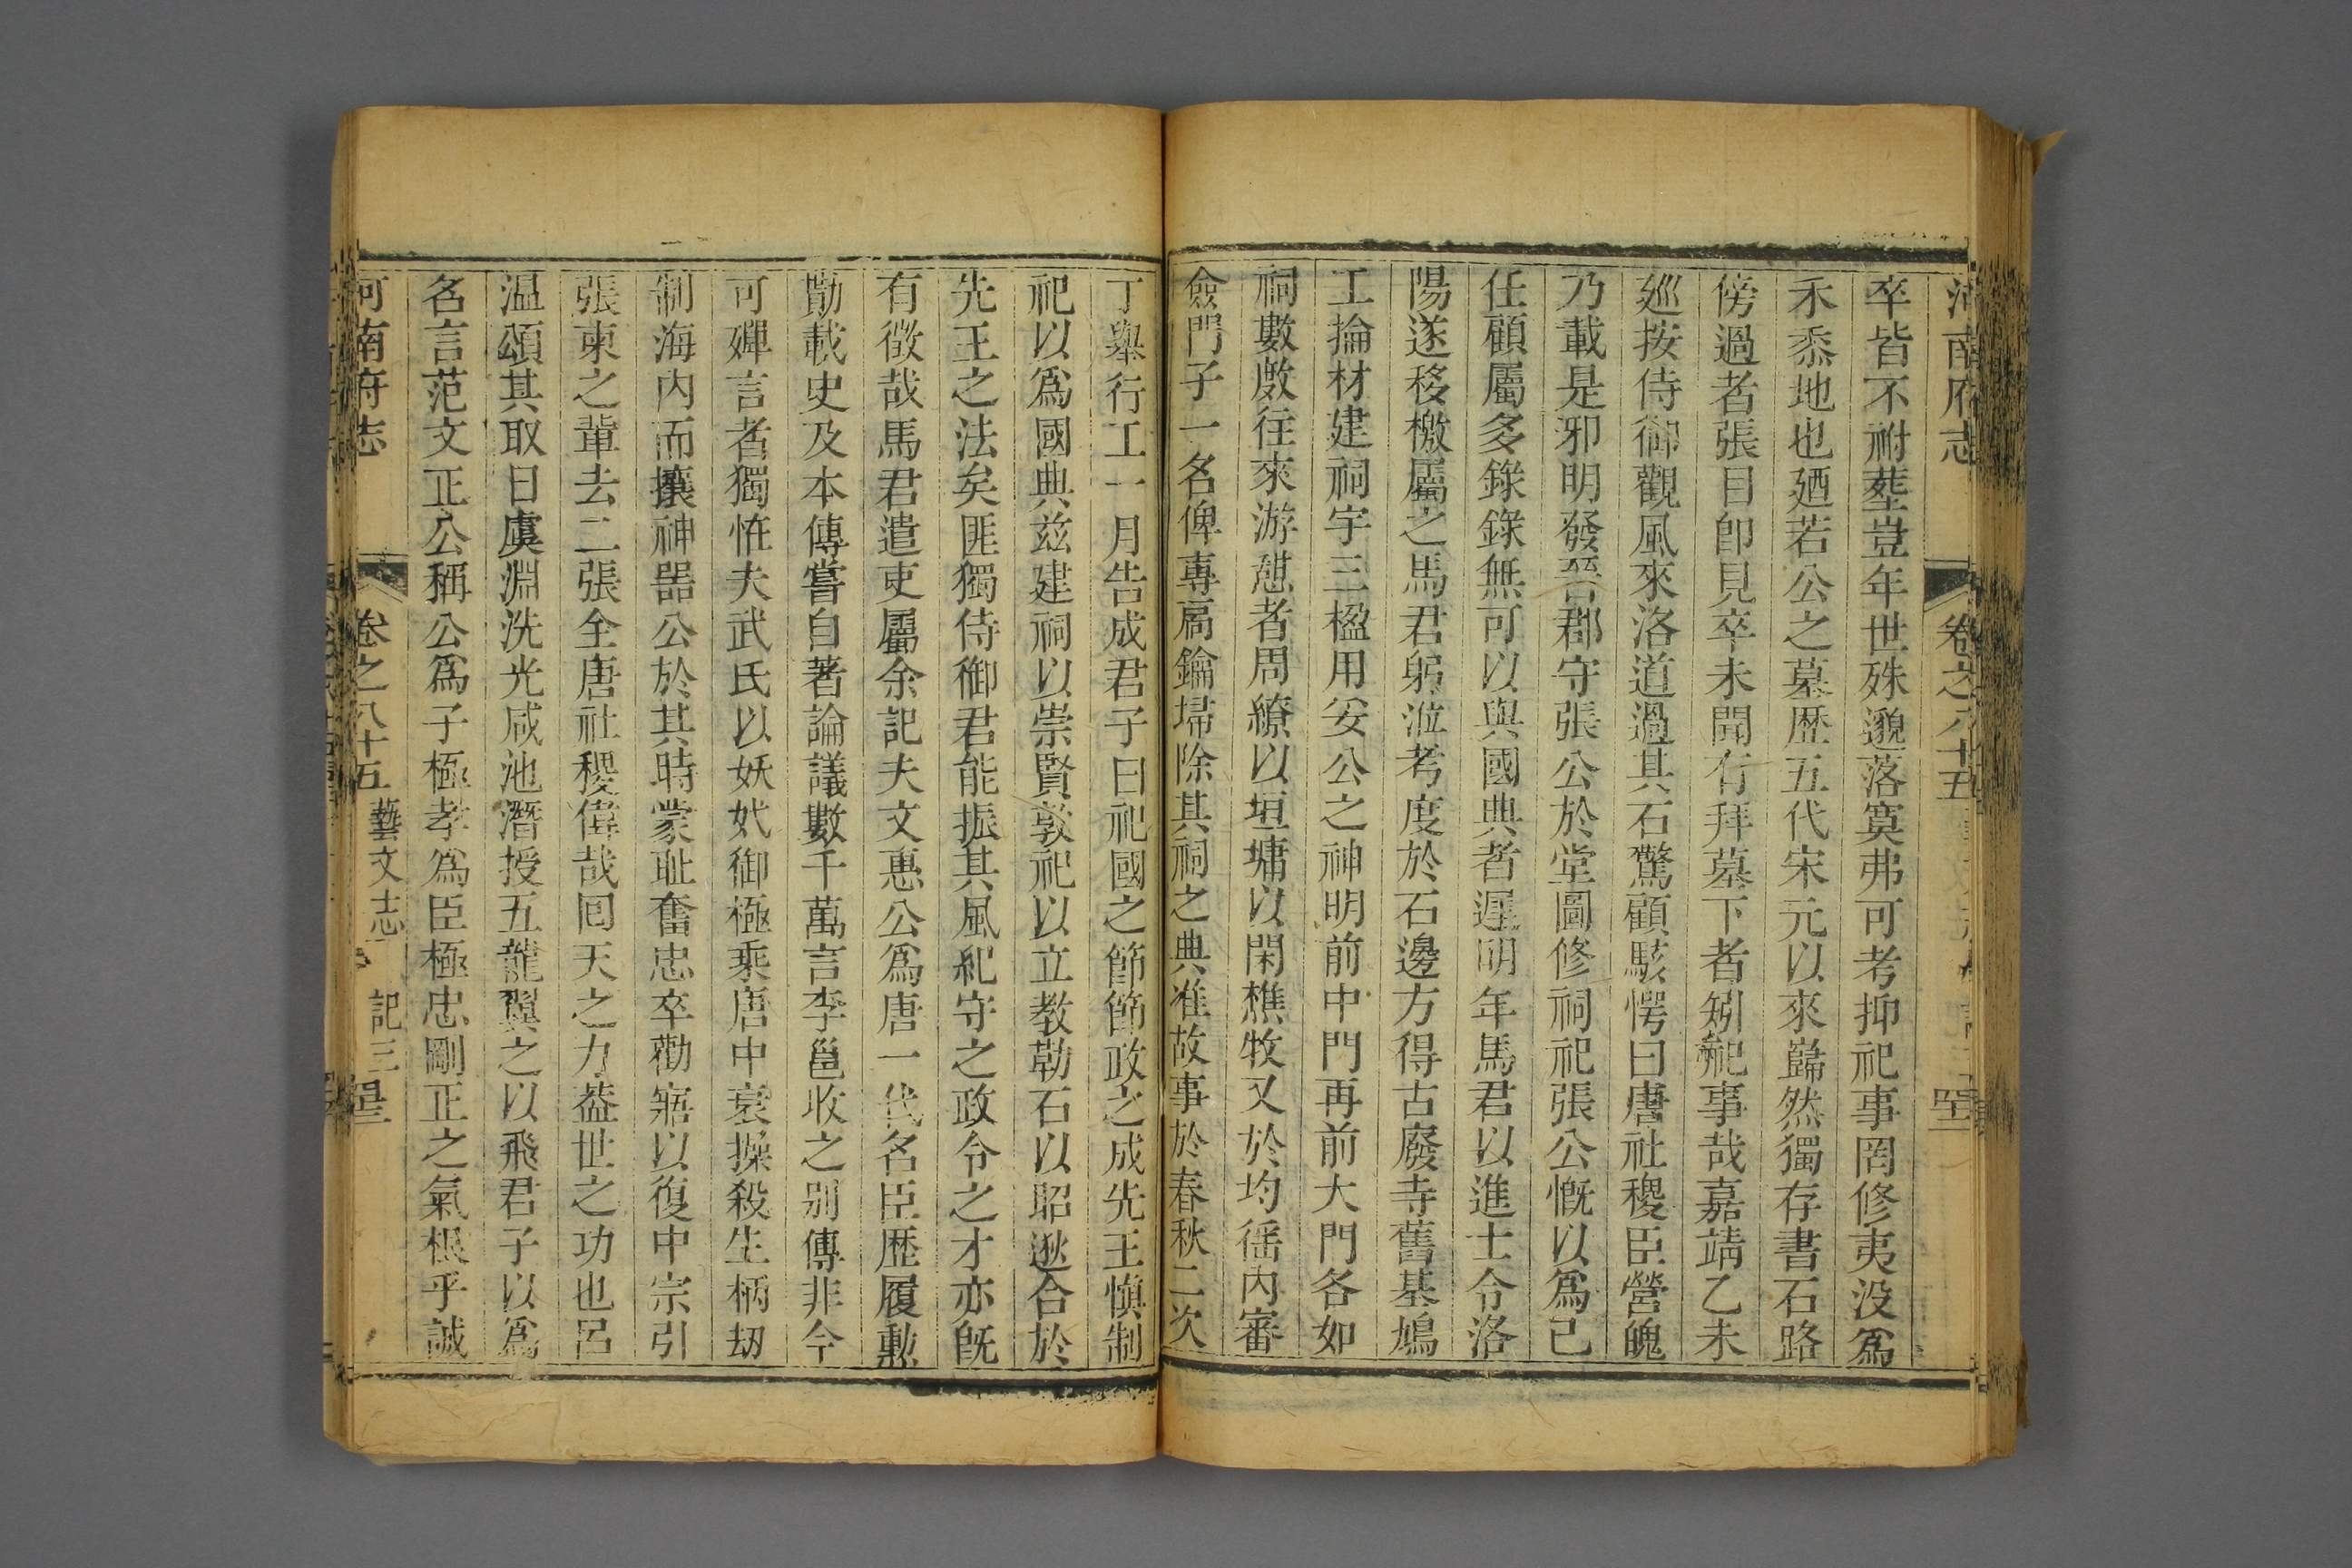 河南府志 卷之八十五
卒皆不祔塟豈年世殊邈落寞弗可考抑祀事罔修夷没爲
禾黍地也廼若公之墓歷五代宋元以來巋然獨存書石路
傍過者張目卽見卒未聞有拜墓下者矧祀事哉嘉靖乙未
廵按侍御觀風來洛道過其石驚顧駭愕曰唐社稷臣營魄
乃載是邪明發咨郡守張公於堂圖修祠祀張公慨以爲己
任顧屬多錄錄無可以與國典者遲明年馬君以進士令洛
陽遂移檄屬之馬君躬涖考度於石邊方得古廢寺舊基鳩
工掄材建祠宇三楹用妥公之神明前中門再前大門各如
祠數廒徃來游憇者周繚以垣墉以閑樵牧又於均徭内審
僉門子一名俾專扃鑰埽除其祠之典准故事於春秋二次
丁舉行工一月告成君子曰祀國之節節政之成先王愼制
祀以爲國典兹建祠以崇賢敦祀以立教勒石以昭逖合於
先王之法矣匪獨侍御君能振其風紀守之政令之才亦旣
有徵哉馬君遣吏屬余記夫文惠公爲唐一代名臣歷履勲
勩載史及本傳嘗自著論議數千萬言李邕收之别傳非今
可殫言者獨恠夫武氏以妖妷御極乘唐中衰操殺生柄刼
制海内而攘神器公於其時蒙耻奮忠卒勸寤以復中宗引
張柬之軰去二張全唐社稷偉哉囘天之力葢世之功也呂
温頌其取日虞淵洗光咸池潛授五龍翼之以飛君子以爲
名言范文正公稱公爲子極孝爲臣極忠剛正之氣根乎誠
河南府志 卷之八十五 藝文志 記三